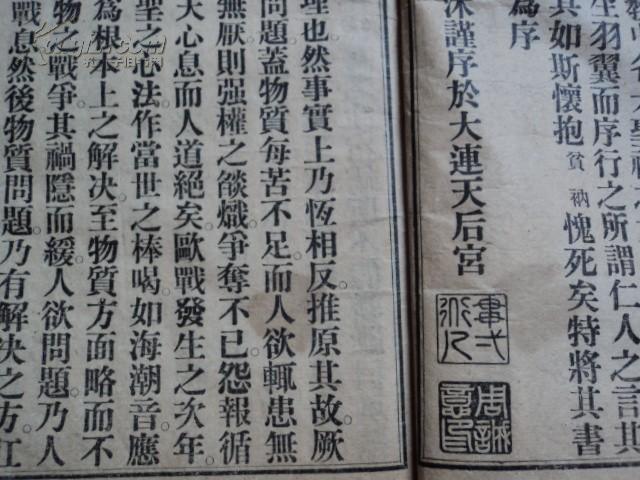 生羽翼而序行之所謂仁人之言其
其如斯懷抱貧衲愧死矣特將其書
為序
沐謹序於大連天后宮
理也然事實上乃恆相反推原其故厥
問題蓋物質每苦不足而人欲輒患無
無厭則强權之燄熾爭奪不已怨報循
天心息而人道絕矣歐戰發生之次年
聖之心法作當世之棒喝如海潮音應
為根本上之解决至物質方面略而不
物之戰爭其禍隱而緩人欲問題乃人
戰息然後物質問題乃有解決之方江